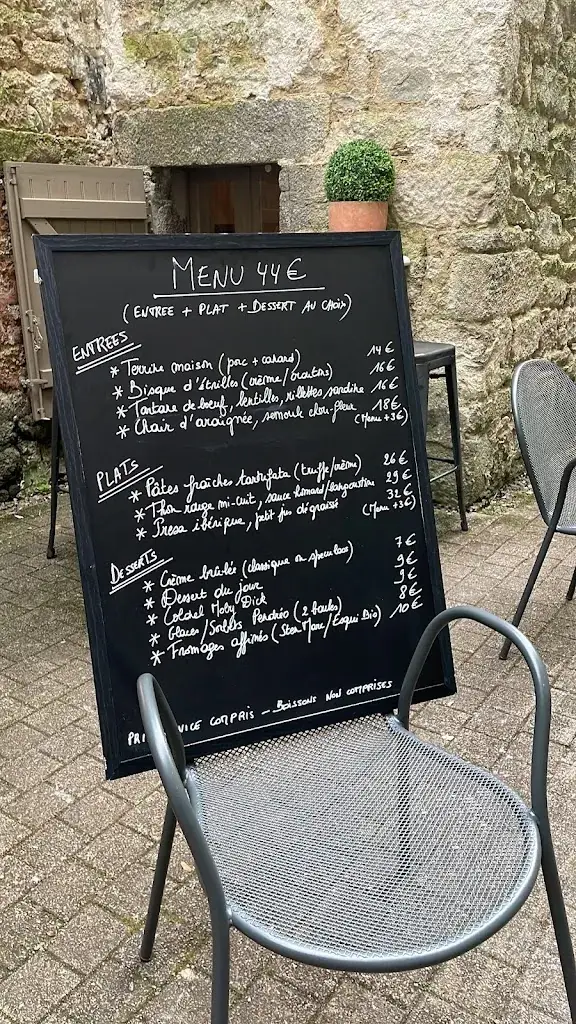 MENU 44€
(ENTREE + PLAT + DESSERT AU CHOIX)
ENTREES
* Terrine maison (porc + canard) 14€
* Bisque d'étrilles (crème/croutons) 16€
* Tartare de bœuf, lentilles, rillettes sardine 16€
* Chair d'araignée, semoule chou-fleur 18€
(Menu +3€)
PLATS
* Pâtes fraîches tartufata (truffe/crème) 26€
* Thon rouge mi-cuit, sauce homard/langoustine 29€
* Presa ibérique, petit jus dégraissé 32€
(Menu +3€)
DESSERTS
* Crème brûlée (classique ou speculoos) 7€
* Dessert du jour 9€
* Colonel Moby Dick 9€
* Glaces/Sorbets Pendréo (2 boules) 8€
* Fromages affinés (Ster Marc/Esqui Bio) 10€
COMPRIS - BOISSONS NON COMPRISES